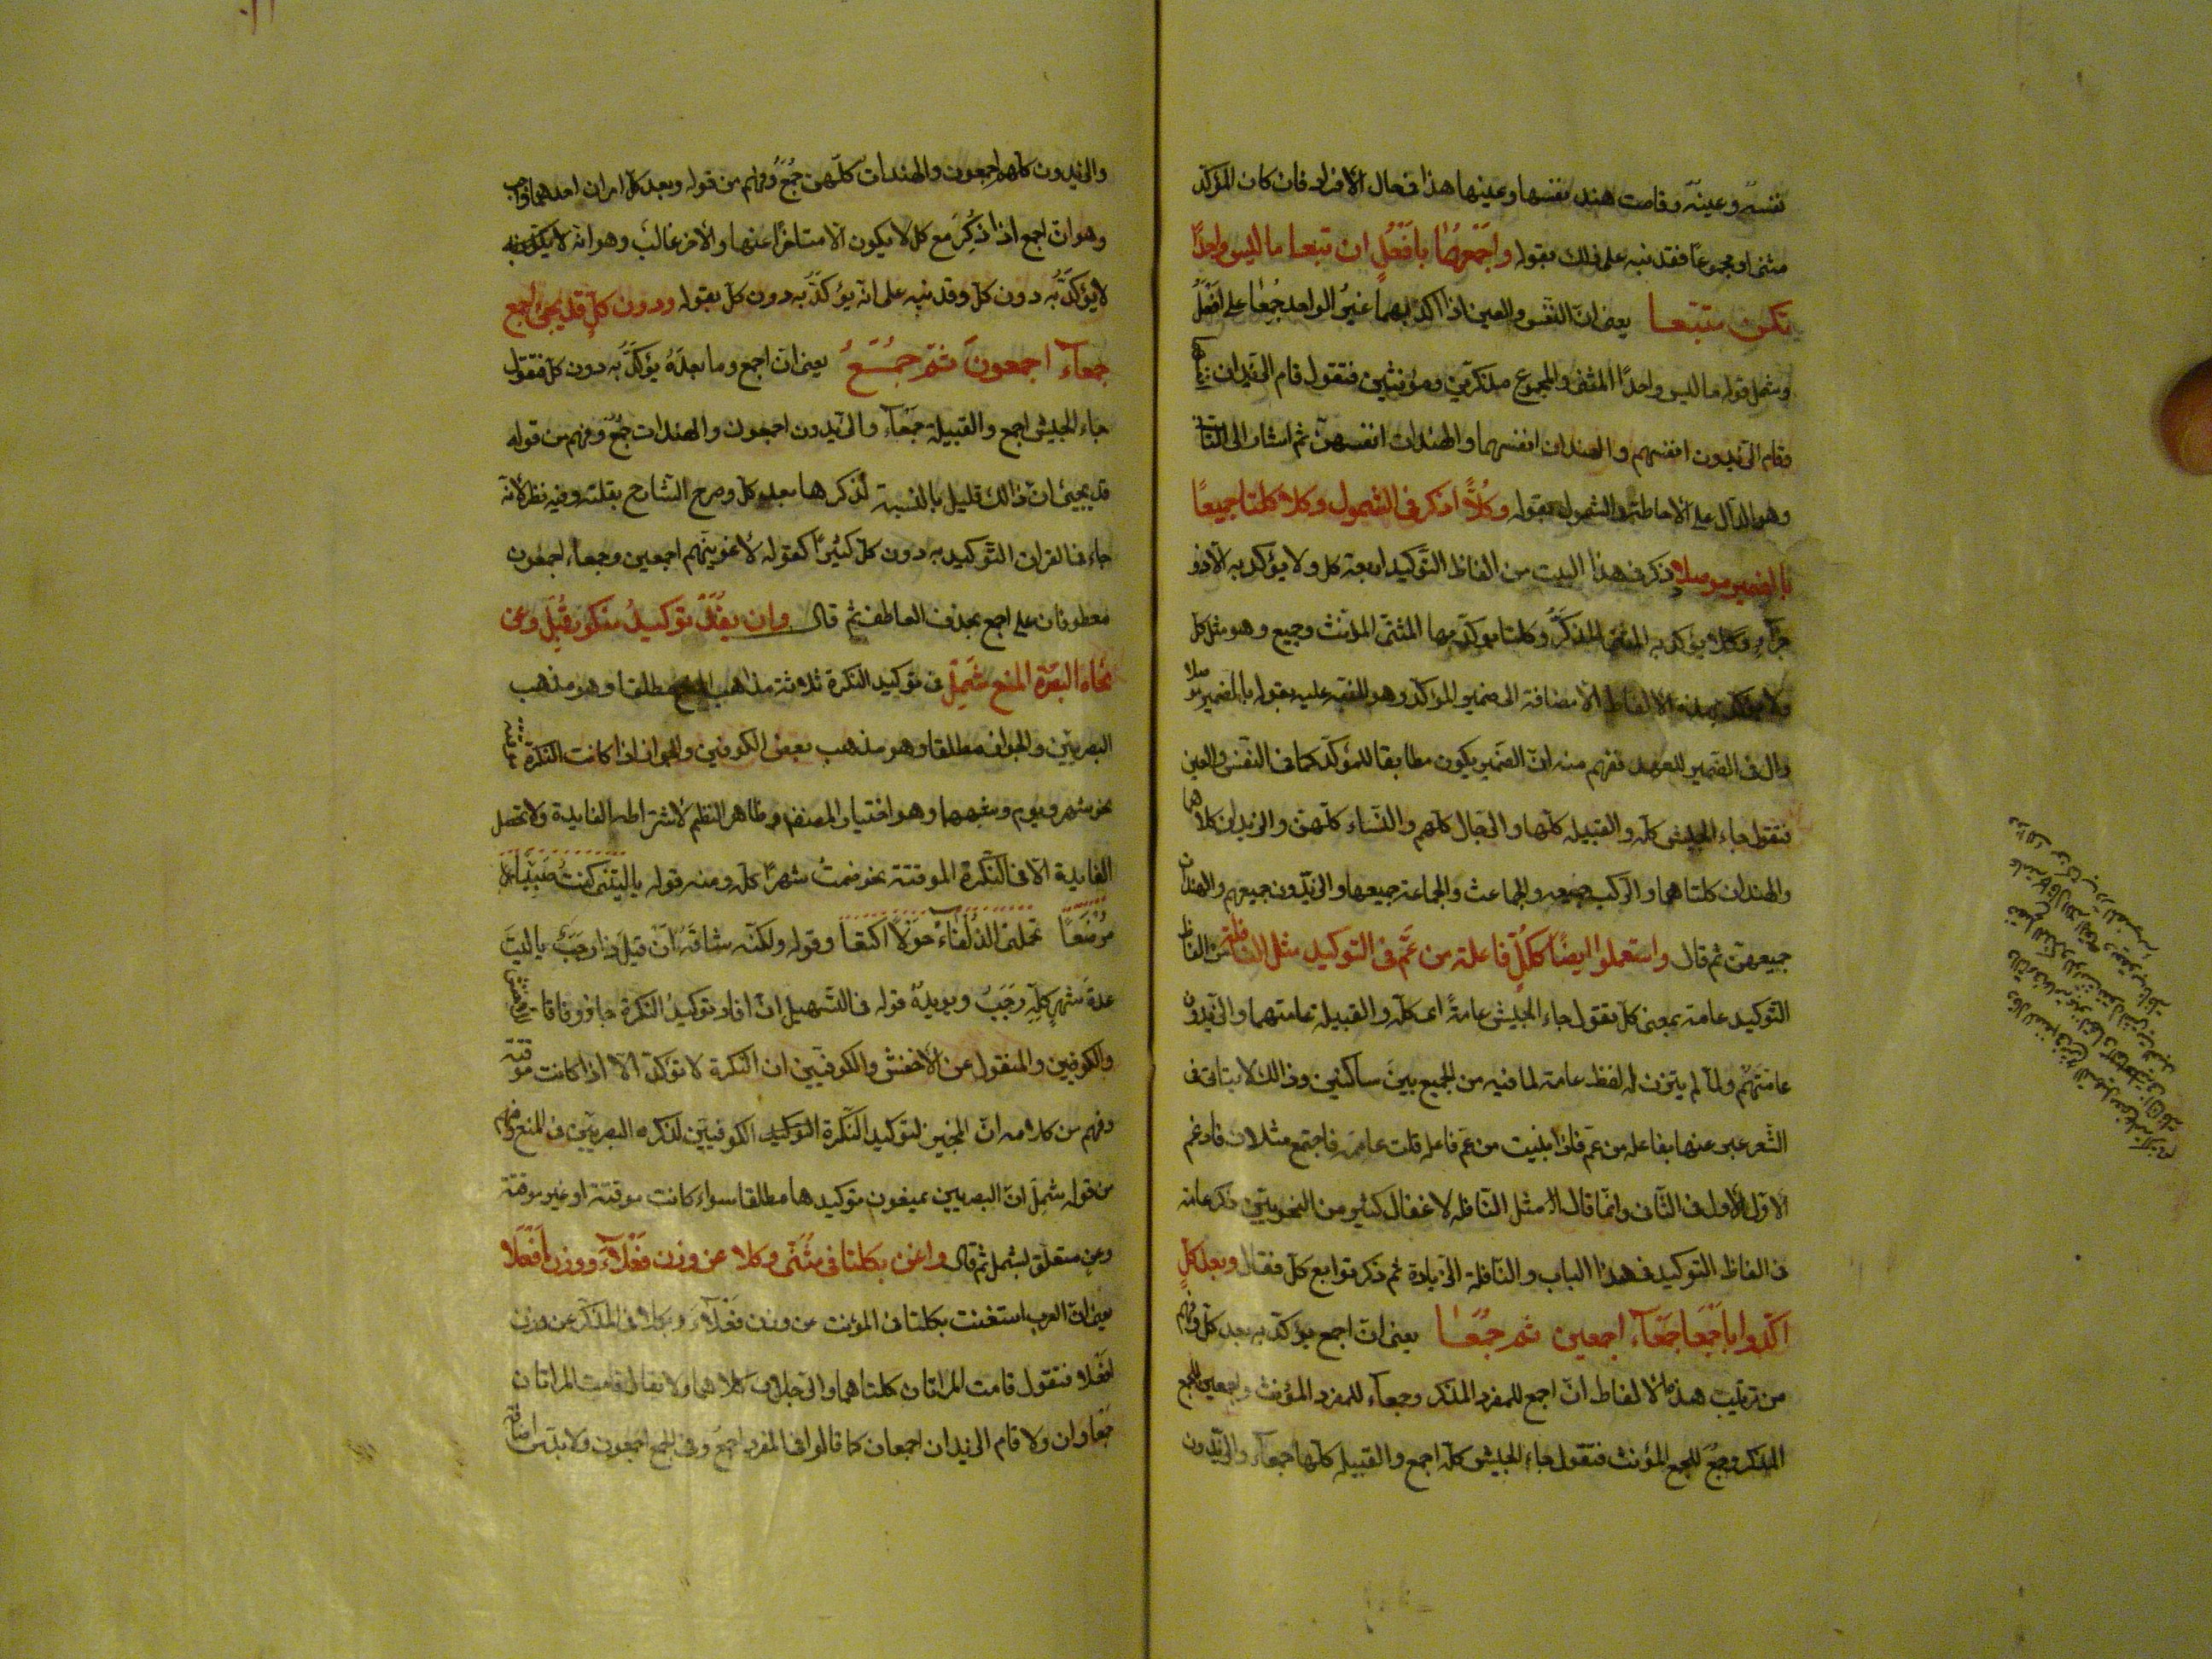 نفسه وعينه وقامت هند نفسها وعينها هذا فى حال الافراد فان كان المؤكّد
مثنى او مجموعًا فقد نبه على ذلك بقوله واجمعهما بافعُلٍ ان تبعا ما ليس واحدًا
تكن متبعا يعنى انّ النّفس والعين اذا اكد بهما غيرُ الواحد جُمِعا على افعُلٍ
وشمل قوله ما ليس واحدًا المثنى والمجموع مذكّرين ومؤنثين فتقول قام الزّيدان
وقام الزّيدون انفسهم والهندان انفسهما والهندات انفسهنّ ثم اشار الى الثّانى
وهو الدّال على الاحاطة والشمول بقوله وكُلًّا اذكر فى الشّمول وكلا كلتا جميعًا
بالضمير موصلا ذكر فى هذا البيت من الفاظ التّوكيد اربعة كل ولا يؤكد به الّا ذو
اجزاء وكلا يؤكد به المثنى المذكّر وكلتا يؤكّد بها المثنّى المؤنّث وجميع وهو مثل كل
ولا يؤكد بهذه الالفاظ الّا مضافة الى ضمير المؤكّد وهو المنبه عليه بقوله بالضمير موصلا
وال فى الضّمير للعهد ففهم منه انّ الضّمير يكون مطابقا للمؤكّد كما فى النّفس والعين
فتقول جاء الجيش كلّه والقبيله كلّها والرّجال كلّهم والنّساء كلّهنّ والزيدان كلاهما
والهندان كلتاهما والرّكب جميعه والجماعة جميعها والزيّدون جميعهم والهندات
جميعهنّ ثم قال واستعملوا ايضًا ككُلٍّ فاعلة من عَمَّ فى التوكيد مثل النافلة من الفاظ
التّوكيد عامة بمعنى كلّ تقول جاء الجيش عامةً اى كلّه والقبيلة عامتهما والزّيدون
عامّتهم ولمّا لم يتزن له لفظ عامة لما فيه من الجمع بين ساكنين وذالك لا يتاتى فى
الشّعر عبر عنها بفاعله من عمّ فاذا بنيت من عمّ فاعله قلت عاممة فاجتمع مثلان فادغم
الاوّل فى الثّانى وانّما قال مثل النّافله لاغفال كثير من النحويّين ذكر عامة
فى الفاظ التّوكيد فى هذا الباب والنّافلة الزّيادة ثم ذكر توابع كلّ فقال وبعد كلٍّ
اكّدوا باجمعا جمعآء اجمعين ثم جُمعا يعنى انّ اجمع يؤكّد به بعد كلّ وفهم
من ترتيب هذه الالفاظ انّ اجمع للمفرد المذكر وجمعآء للمفرد المؤنث واجمعين للجمع
المذكر وجُمع للجمع المؤنث فتقول جاء الجيش كلّه اجمع والقبيله كلّها جمعآء والزّيدون
والزيدون كلّهم اجمعون والهندات كلّهن جُمَعُ وفهم من قوله وبعد كلّ امران احدهما
وهو انّ اجمع اذا ذُكِرَ مع كل لا يكون الّا متاخرًا عنها والآخر غالب وهو انه
لا يؤكَّدُ به دون كلّ وقد نبه على انّه يؤكَّدُ به دون كلّ بقوله ودون كلٍّ قد يجئ اجمع
جمعآء اجمعونَ ثم جُمَعُ يعنى انّ اجمع وما بعدَهُ يؤكَّدُ به دون كلّ فتقول
جاء الجيش اجمع والقبيلة جمعآء والزّيدون اجمعون والهندات جُمَعُ وفهم من قوله
قد يجئ انّ ذالك قليل بالنّسبة لذكرها بعد كلّ وصرح الشّارح بقلته وفيه نظر لانّه
جاء فى القران التّوكيد به دون كلّ كثيرًا كقوله لاغوينّهم اجمعين وجمعاء اجمعون
معطوفان على اجمع بحذف العاطف ثم قال وان يفد توكيدُ منكورٍ قُبِل وعن
نُحاة البصرة المنع شَمِل فى توكيد النّكرة ثلاثة مذاهب المنع مطلقا وهو مذهب
البصريّين والجواز مطلقا وهو مذهب بعض الكوفين والجواز اذا كانت النّكرة
نحو شهر ويوم وشبههما وهو اختيار المصنف وظاهر النظم لاشتراطه الفايدة ولا تحصل
الفايدة الّا فى النّكرة الموقتة نحو صمتُ شهرًا كلّه ومنه قوله ياليتنى كنتُ صبيًّا
مُرْضَعًا تحملنى الذّلفاءُ حولًا اكتعا وقوله ولكنّه شاقَهُ ان قيل ذا رجبٌ ياليتَ
عدةَ شهرٍ كلِّهِ رَجَبُ ويويدهُ قوله فى التّسهيل ان افاد توكيدُ النّكرة جاز وفاقا
والكوفيين والمنقول عن الاخفش والكوفيّين ان النّكرة لا تؤكّد الّا اذا كانت موقتة
وفهم من كلامه انّ المجيزين لتوكيد النّكرة الكوفيّين لذكره البصريّين فى المنع وفهم
من قوله شَمِلَ انّ البصريين يمنعون توكيدها مطلقا سواء كانت موقتة او غير موقتة
وعن متعلق بشمل ثم قال واغن بكلتا فى مثنّى وكلا عن وزن فعلاءَ ووزن افعلا
يعنى انّ العرب استغنت بكلتا فى المؤنث عن وزن فعلاء وبكلا فى المذكّر عن وزن
افعلا فتقول قامت المراتان كلتاهما والرّجلان كلاهما ولا يقال قامت المراتان
جمعاوان ولا قام الزيدان اجمعان كما قالوا فى المفرد اجمعُ وفى الجمع اجمعون ولا بدّ من اضافة